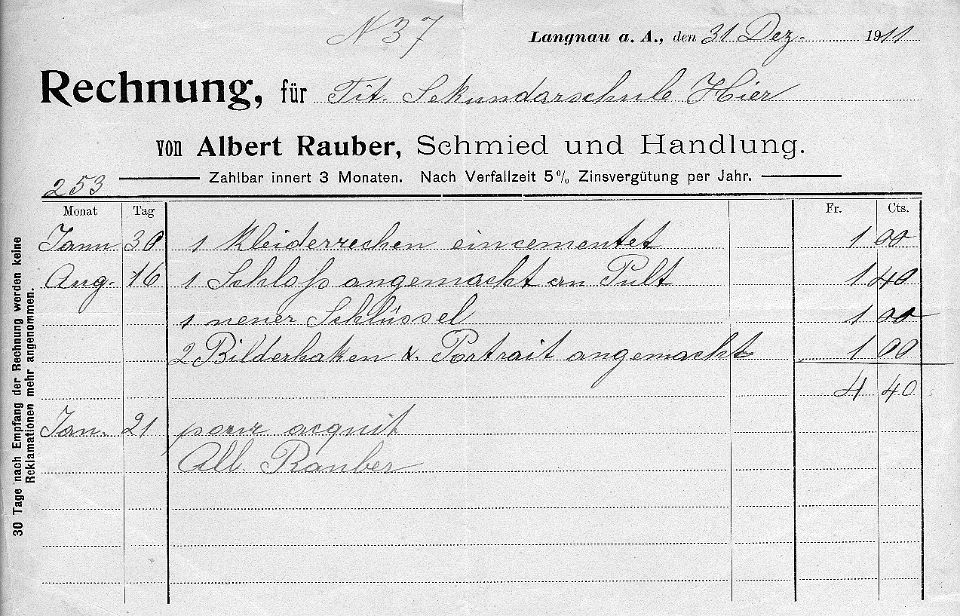 N 37
Langnau a. A., den 31 Dez. 1911
Rechnung, für Tit. Sekundarschule Hier
von Albert Rauber, Schmied und Handlung.
Zahlbar innert 3 Monaten. Nach Verfallzeit 5% Zinsvergütung per Jahr.
253
Monat Tag Fr. Cts.
Jann 30 1 Kleiderrechen eincementet 1 00
Aug. 16 1 Schloß angemacht an Pult 1 40
1 neuer Schlüssel 1 00
2 Bilderhaken & Portrait angemacht 1 00
4 40
Jan. 21 pour acquit
Alb Rauber
30 Tage nach Empfang der Rechnung werden keine
Reklamationen mehr angenommen.